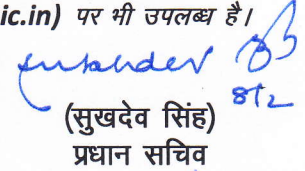 ic.in) पर भी उपलब्ध है।
sukhdev
8/2
(सुखदेव सिंह)
प्रधान सचिव